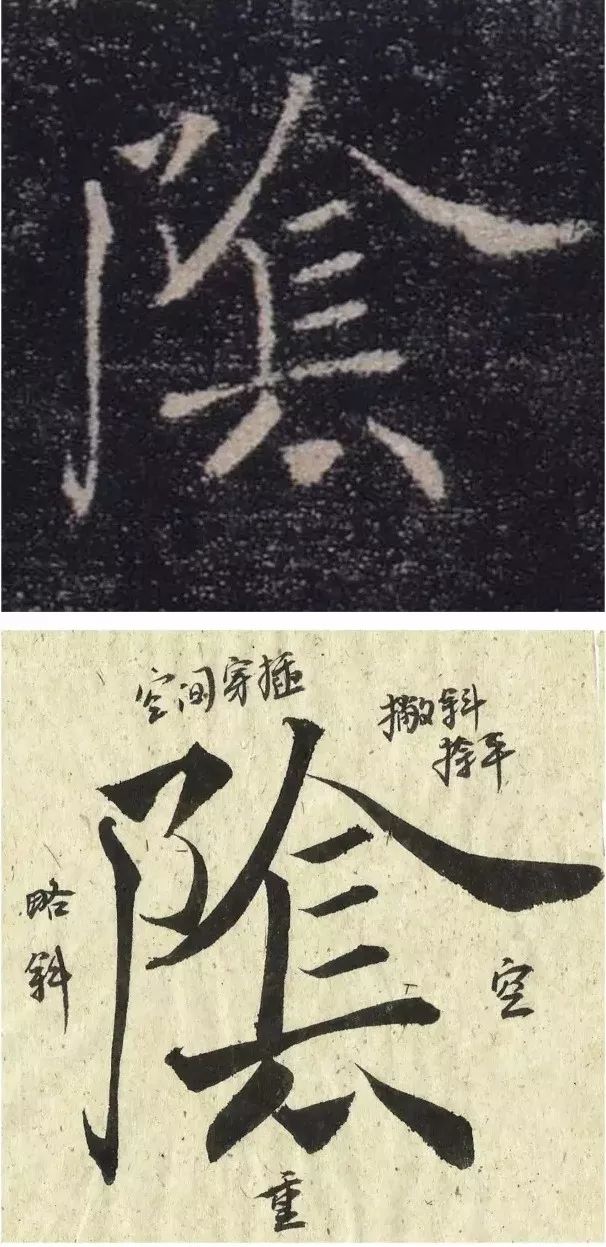 隂
空间穿插
撇斜
捺平
隂
略斜
空
重